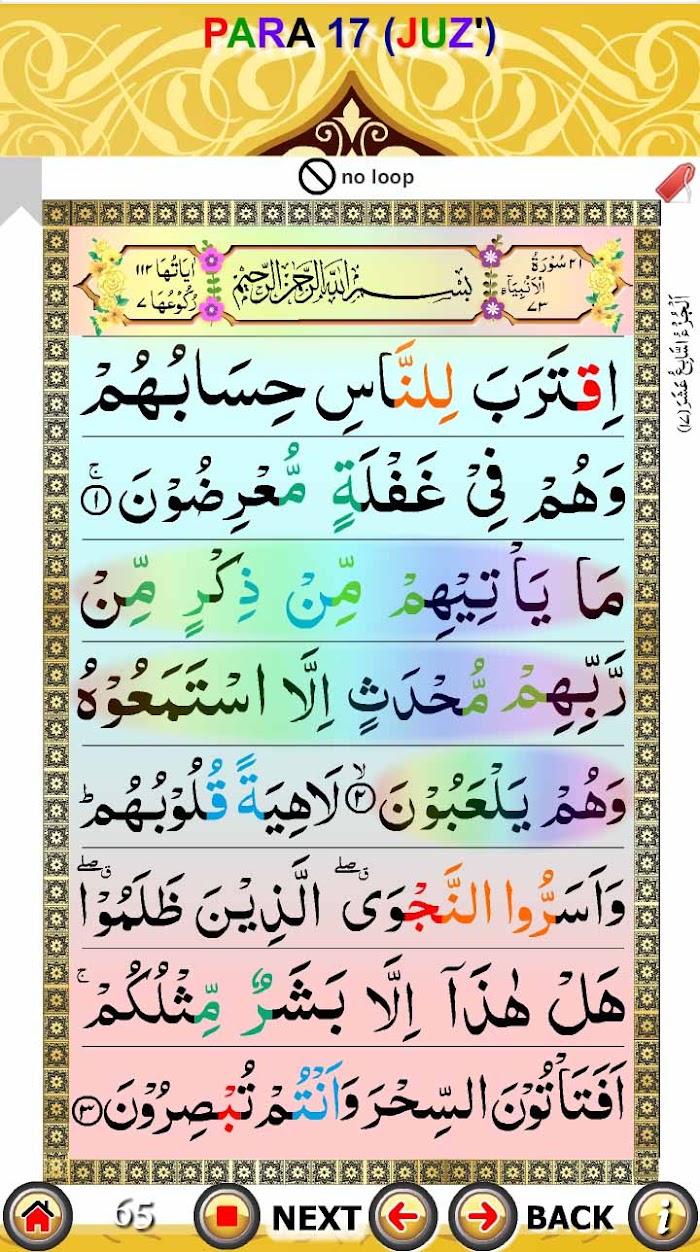 PARA 17 (JUZ')
no loop
٢١ سُوْرَةُ الْاَنْبِيَآءِ ٧٣
بِسْمِ اللّٰهِ الرَّحْمٰنِ الرَّحِيْمِ
اٰيَاتُهَا ١١٢
رُكُوْعُهَا ٧
اَلْجُزْءُ السَّابِعُ عَشَرَ (١٧)
اِقْتَرَبَ لِلنَّاسِ حِسَابُهُمْ
وَهُمْ فِيْ غَفْلَةٍ مُّعْرِضُوْنَ ۚ ﴿١﴾
مَا يَاْتِيْهِمْ مِّنْ ذِكْرٍ مِّنْ
رَّبِّهِمْ مُّحْدَثٍ اِلَّا اسْتَمَعُوْهُ
وَهُمْ يَلْعَبُوْنَ ۙ ﴿٢﴾ لَاهِيَةً قُلُوْبُهُمْ ؕ
وَاَسَرُّوا النَّجْوَى ۖق الَّذِيْنَ ظَلَمُوْا ۖق
هَلْ هٰذَآ اِلَّا بَشَرٌ مِّثْلُكُمْ ۚ
اَفَتَاْتُوْنَ السِّحْرَ وَاَنْتُمْ تُبْصِرُوْنَ ﴿٣﴾
65 NEXT BACK i